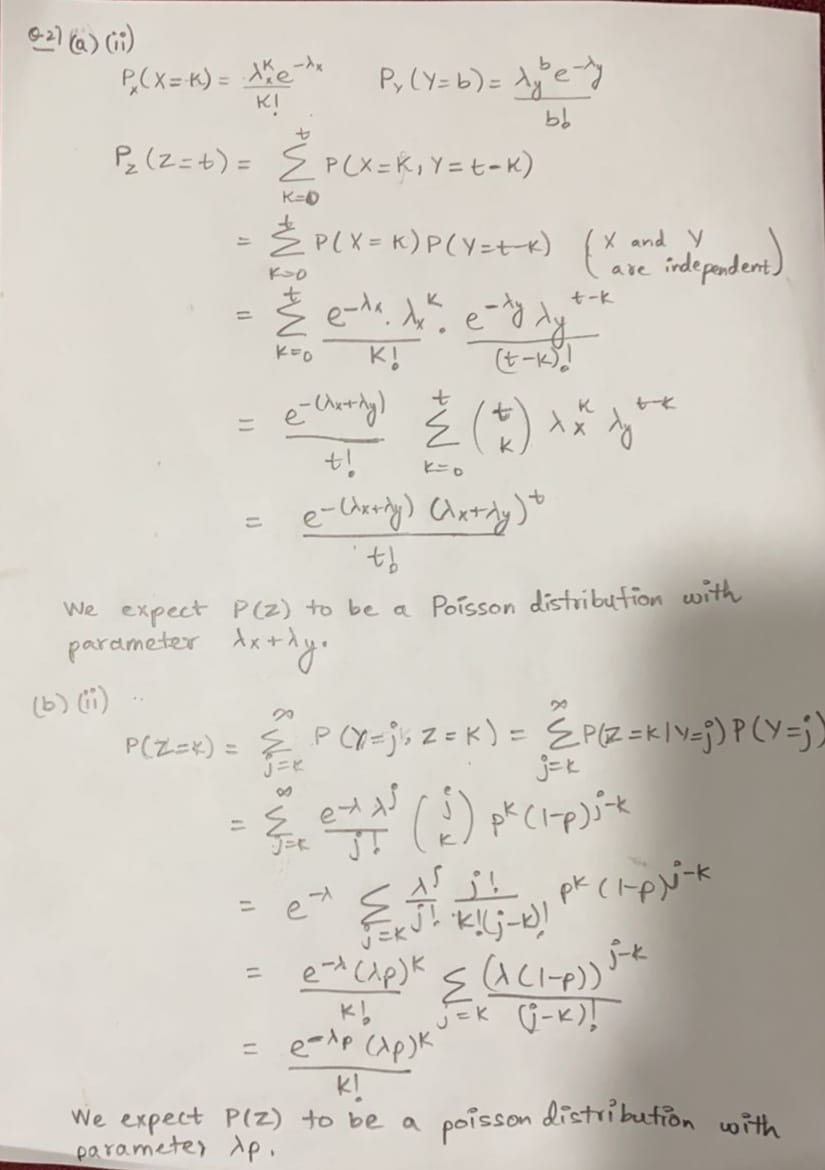 Q-2) (a) (ii)
P_x(X=K) = λ_x^K e^{-λ_x} / K!    P_Y(Y=b) = λ_y^b e^{-λ_y} / b!
P_Z(Z=t) = Σ_{K=0}^{t} P(X=K, Y=t-K)
= Σ_{K=0}^{t} P(X=K) P(Y=t-K) (X and Y
are independent)
= Σ_{K=0}^{t} e^{-λ_x} . λ_x^K / K! . e^{-λ_y} λ_y^{t-K} / (t-K)!
= e^{-(λ_x+λ_y)} / t! Σ_{K=0}^{t} (t K) λ_x^K λ_y^{t-K}
= e^{-(λ_x+λ_y)} (λ_x+λ_y)^t / t!
We expect P(Z) to be a Poisson distribution with
parameter λ_x+λ_y.
(b) (ii) ..
P(Z=K) = Σ_{j=K}^{∞} P(Y=j, Z=K) = Σ_{j=K}^{∞} P(Z=K|Y=j) P(Y=j)
= Σ_{j=K}^{∞} e^{-λ} λ^j / j! (j K) p^K (1-p)^{j-K}
= e^{-λ} Σ_{j=K} λ^j / j! j! / K!(j-K)! p^K (1-p)^{j-K}
= e^{-λ} (λp)^K / K! Σ_{j=K} (λ(1-p))^{j-K} / (j-K)!
= e^{-λp} (λp)^K / K!
We expect P(Z) to be a poisson distribution with
parameter λp.